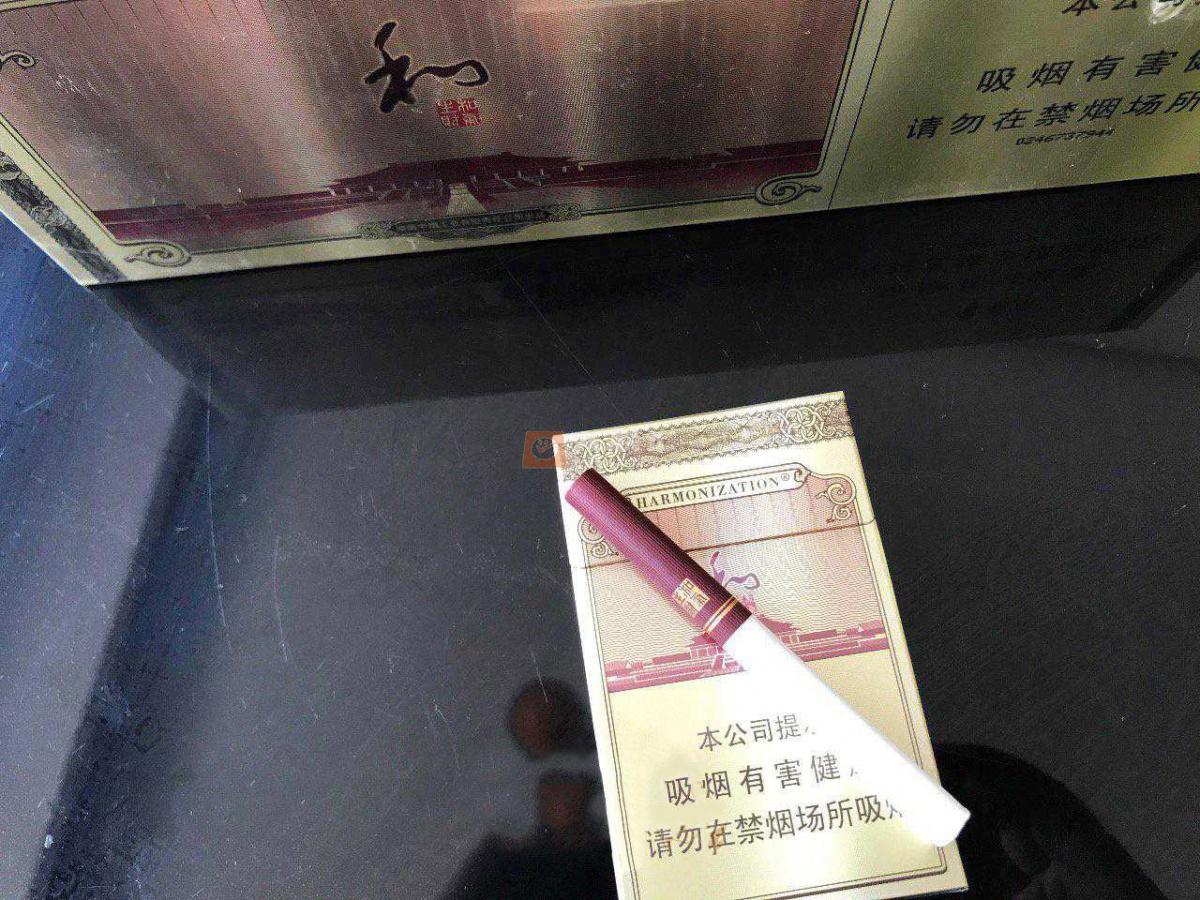 和
和氣
生財
本公司
吸烟有害健
请勿在禁烟场所
0246737944
HARMONIZATION®
和
本公司提
吸烟有害健
请勿在禁烟场所吸